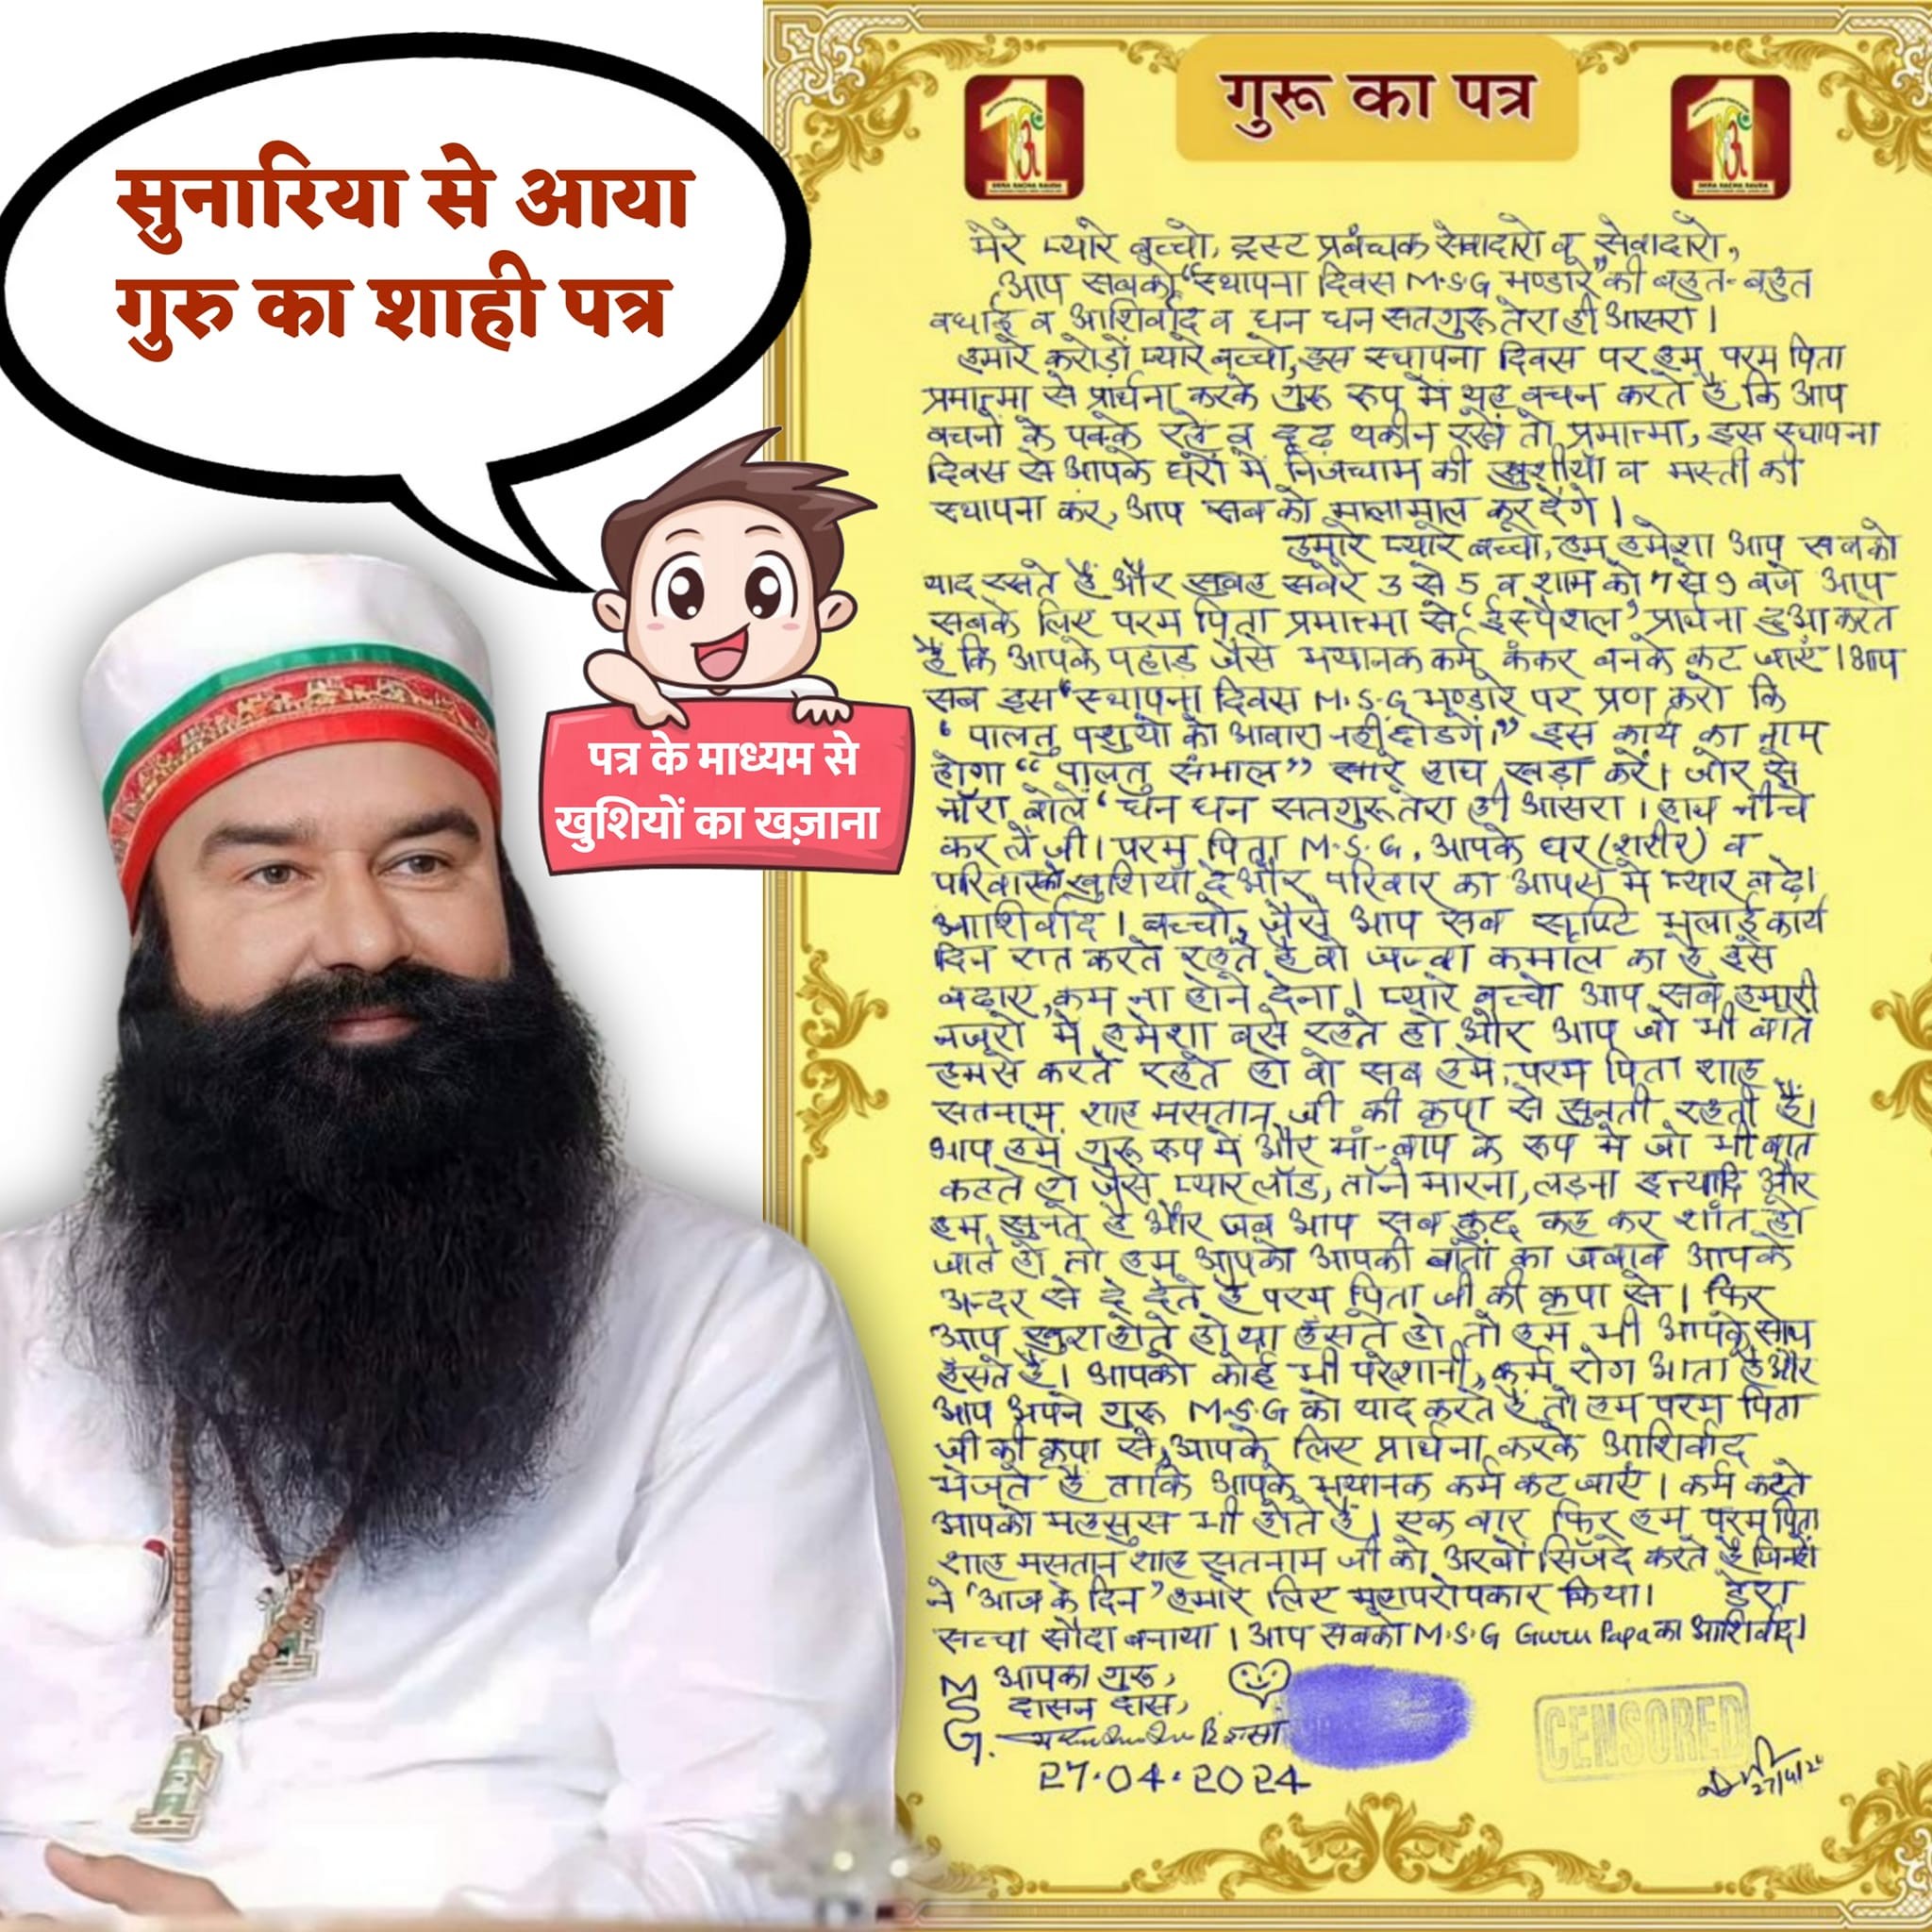 सुनारिया से आया
गुरु का शाही पत्र
पत्र के माध्यम से
खुशियों का खज़ाना
गुरू का पत्र
DERA SACHA SAUDA
DERA SACHA SAUDA
मेरे प्यारे बच्चो, ट्रस्ट प्रबंधक सेवादारो व सेवादारो,
आप सबको “स्थापना दिवस M.S.G भण्डारे” की बहुत-बहुत
बधाई व आशिर्वाद व धन धन सतगुरू तेरा ही आसरा।
हमारे करोड़ों प्यारे बच्चो, इस स्थापना दिवस पर हम परम पिता
प्रमात्मा से प्रार्थना करके गुरू रूप में यह वचन करते है कि आप
वचनों के पक्के रहें व दृढ़ यकीन रखें तो प्रमात्मा, इस स्थापना
दिवस से आपके घरों में निजधाम की खुशीयाँ व मस्ती की
स्थापना कर, आप सब को मालामाल कर देंगे।
हमारे प्यारे बच्चो, हम हमेशा आप सबको
याद रखते हैं और सुबह सवेरे 3 से 5 व शाम को 7 से 9 बजे आप
सबके लिए परम पिता प्रमात्मा से ‘ईस्पैशल’ प्रार्थना दुआ करते
हैं कि आपके पहाड़ जैसे भयानक कर्म कंकर बनके कट जाएं। आप
सब इस “स्थापना दिवस M.S.G भण्डारे पर प्रण करो कि
“पालतु पशुयों को आवारा नहीं छोडगें।” इस कार्य का नाम
होगा “पालतु संभाल” सारे हाथ खड़ा करें। जोर से
नॉरा बोलें ‘धन धन सतगुरू तेरा ही आसरा। हाथ नीचे
कर लें जी। परम पिता M.S.G, आपके घर (शरीर) व
परिवार को खुशियां दे और परिवार का आपस में प्यार बढ़े।
आशिर्वाद। बच्चो, जैसे आप सब सृष्टि भलाई कार्य
दिन रात करते रहते है वो जज्बा कमाल का है इसे
बढ़ाए, कम ना होने देना। प्यारे बच्चो आप सब हमारी
नजरों में हमेशा बसे रहते हो और आप जो भी बातें
हमसे करते रहते हो वो सब हमें, परम पिता शाह
सतनाम, शाह मसतान जी की कृपा से सुनती रहती हैं।
आप हमें गुरू रूप में और मां-बाप के रूप में जो भी बात
कहते हो जैसे प्यार लॉड, तॉने मारना, लड़ना इत्यादि और
हम सुनते है और जब आप सब कुछ कह कर शांत हो
जाते हो तो हम आपको आपकी बातों का जवाब आपके
अन्दर से दे देते है परम पिता जी की कृपा से। फिर
आप खुश होते हो या हँसते हो तो हम भी आपके साथ
हँसते हैं। आपको कोई भी परेशानी, कर्म रोग आता है और
आप अपने गुरू M.S.G को याद करते हैं तो हम परम पिता
जी की कृपा से, आपके लिए प्रार्थना करके आशिर्वाद
भेजते है ताकि आपके भयानक कर्म कट जाएं। कर्म कटते
आपको महसुस भी होते हैं। एक बार फिर हम परम पिता
शाह मसतान शाह सतनाम जी को अरबों सिजदे करते हैं जिन्हों
ने ‘आज के दिन’ हमारे लिए महापरोपकार किया। डेरा
सच्चा सौदा बनाया। आप सबको M.S.G Guru Papa का आशिर्वाद।
आपका गुरू,
दासन दास,
M
S
G.
27.04.2024
CENSORED
27/4/24